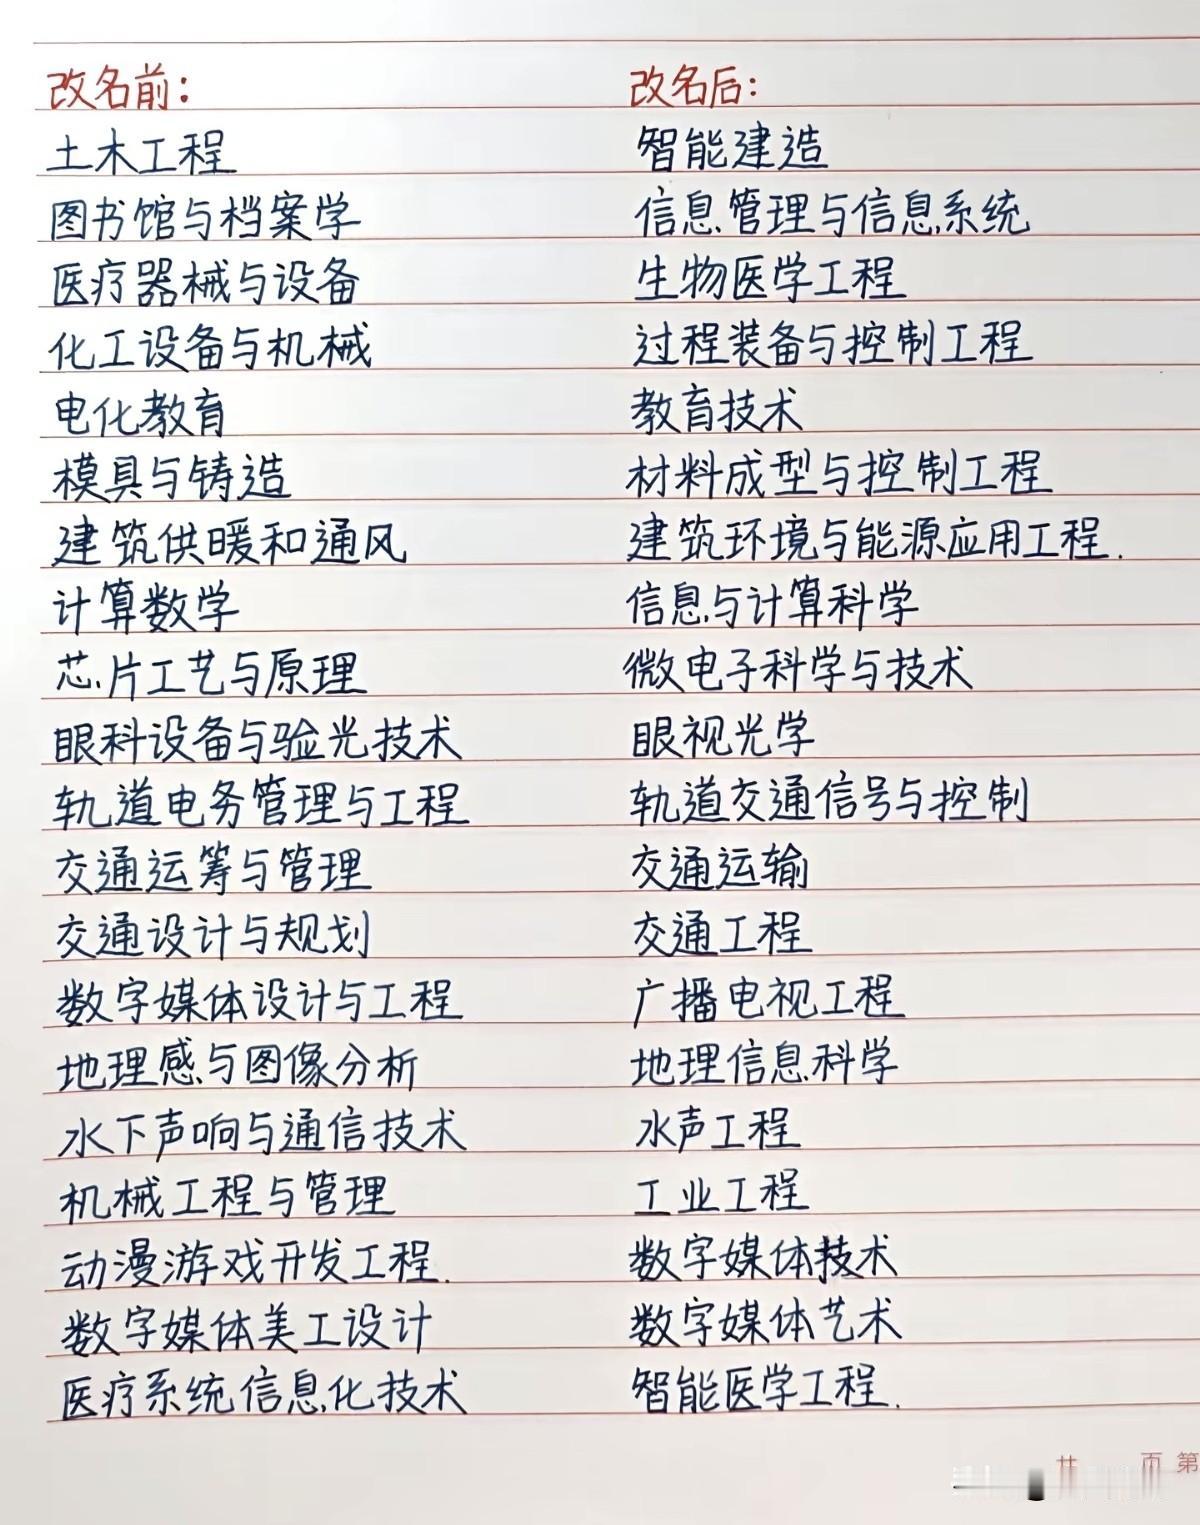 改名前： 改名后：
土木工程 智能建造
图书馆与档案学 信息管理与信息系统
医疗器械与设备 生物医学工程
化工设备与机械 过程装备与控制工程
电化教育 教育技术
模具与铸造 材料成型与控制工程
建筑供暖和通风 建筑环境与能源应用工程.
计算数学 信息与计算科学
芯片工艺与原理 微电子科学与技术
眼科设备与验光技术 眼视光学
轨道电务管理与工程 轨道交通信号与控制
交通运筹与管理 交通运输
交通设计与规划 交通工程
数字媒体设计与工程 广播电视工程
地理感与图像分析 地理信息科学
水下声响与通信技术 水声工程
机械工程与管理 工业工程
动漫游戏开发工程. 数字媒体技术
数字媒体美工设计 数字媒体艺术
医疗系统信息化技术 智能医学工程.
共 页 第